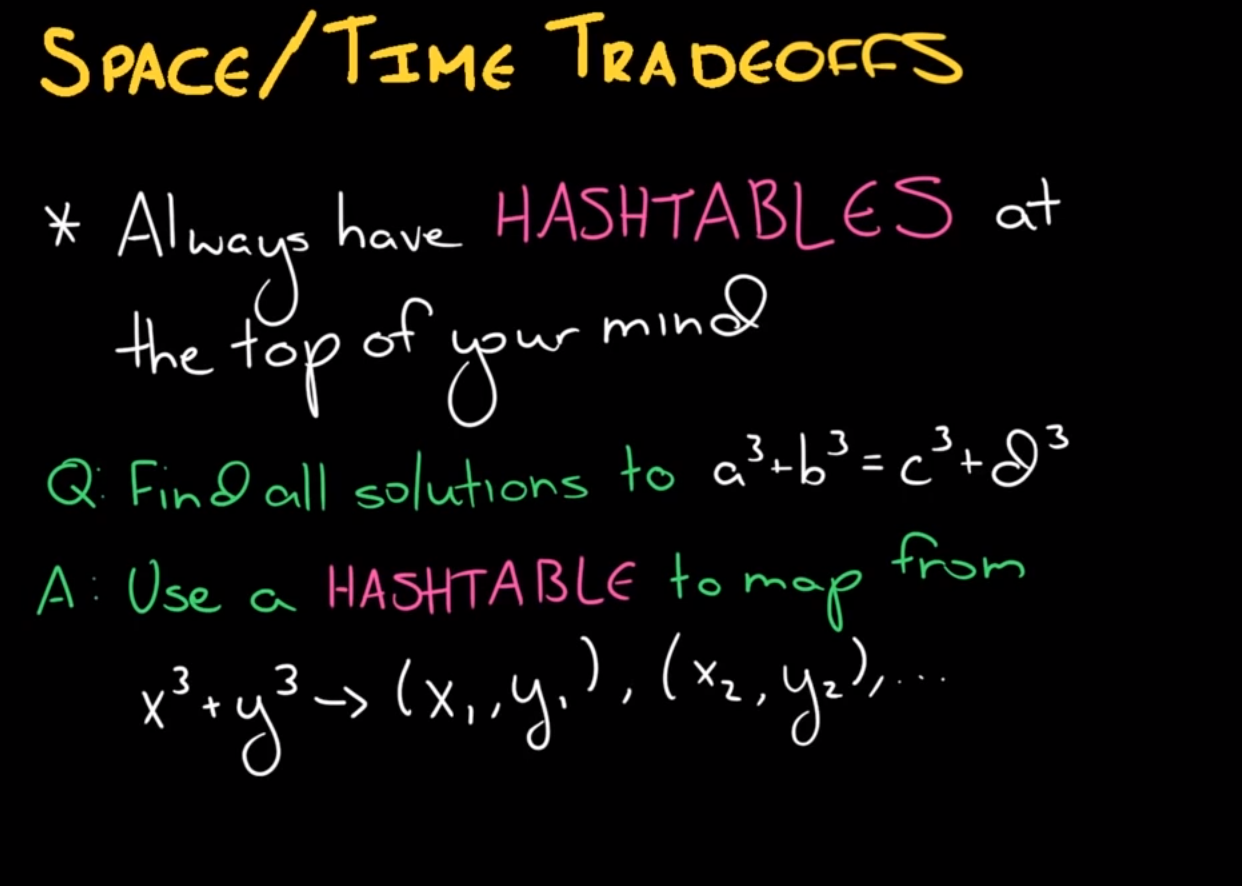 SPACE/TIME TRADEOFFS
* Always have HASHTABLES at
the top of your mind
Q: Find all solutions to a³+b³=c³+d³
A: Use a HASHTABLE to map from
x³+y³→(x₁,y₁),(x₂,y₂),...